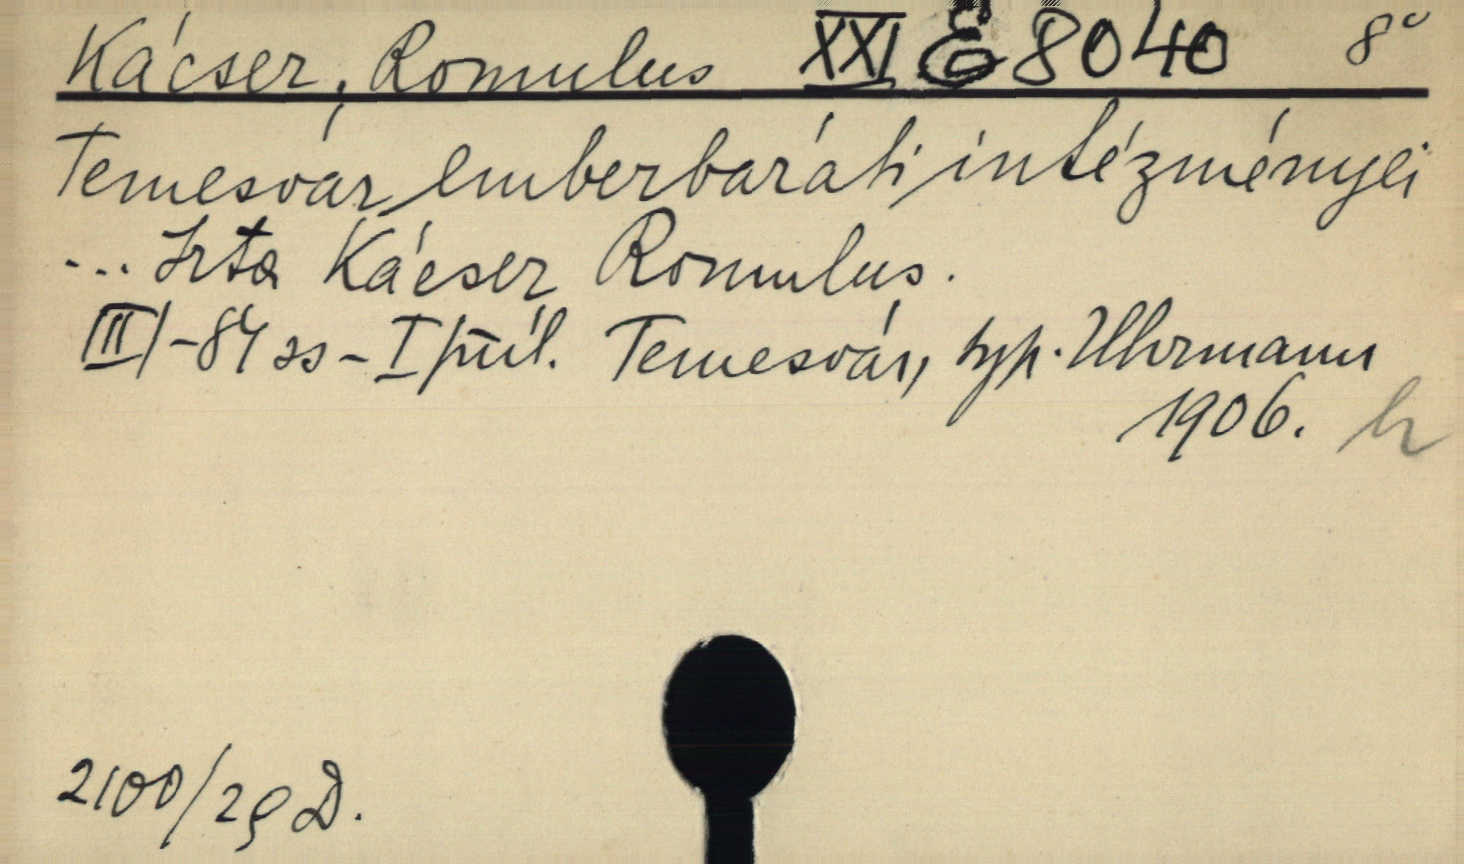 Kácser, Romulus XXI E 8040 8°
Temesvár emberbaráti intézményei
... Irta Kácser Romulus.
III/-84 ss - I fűl. Temesvár, typ. Uhrmann
1906. h
2100/29 D.